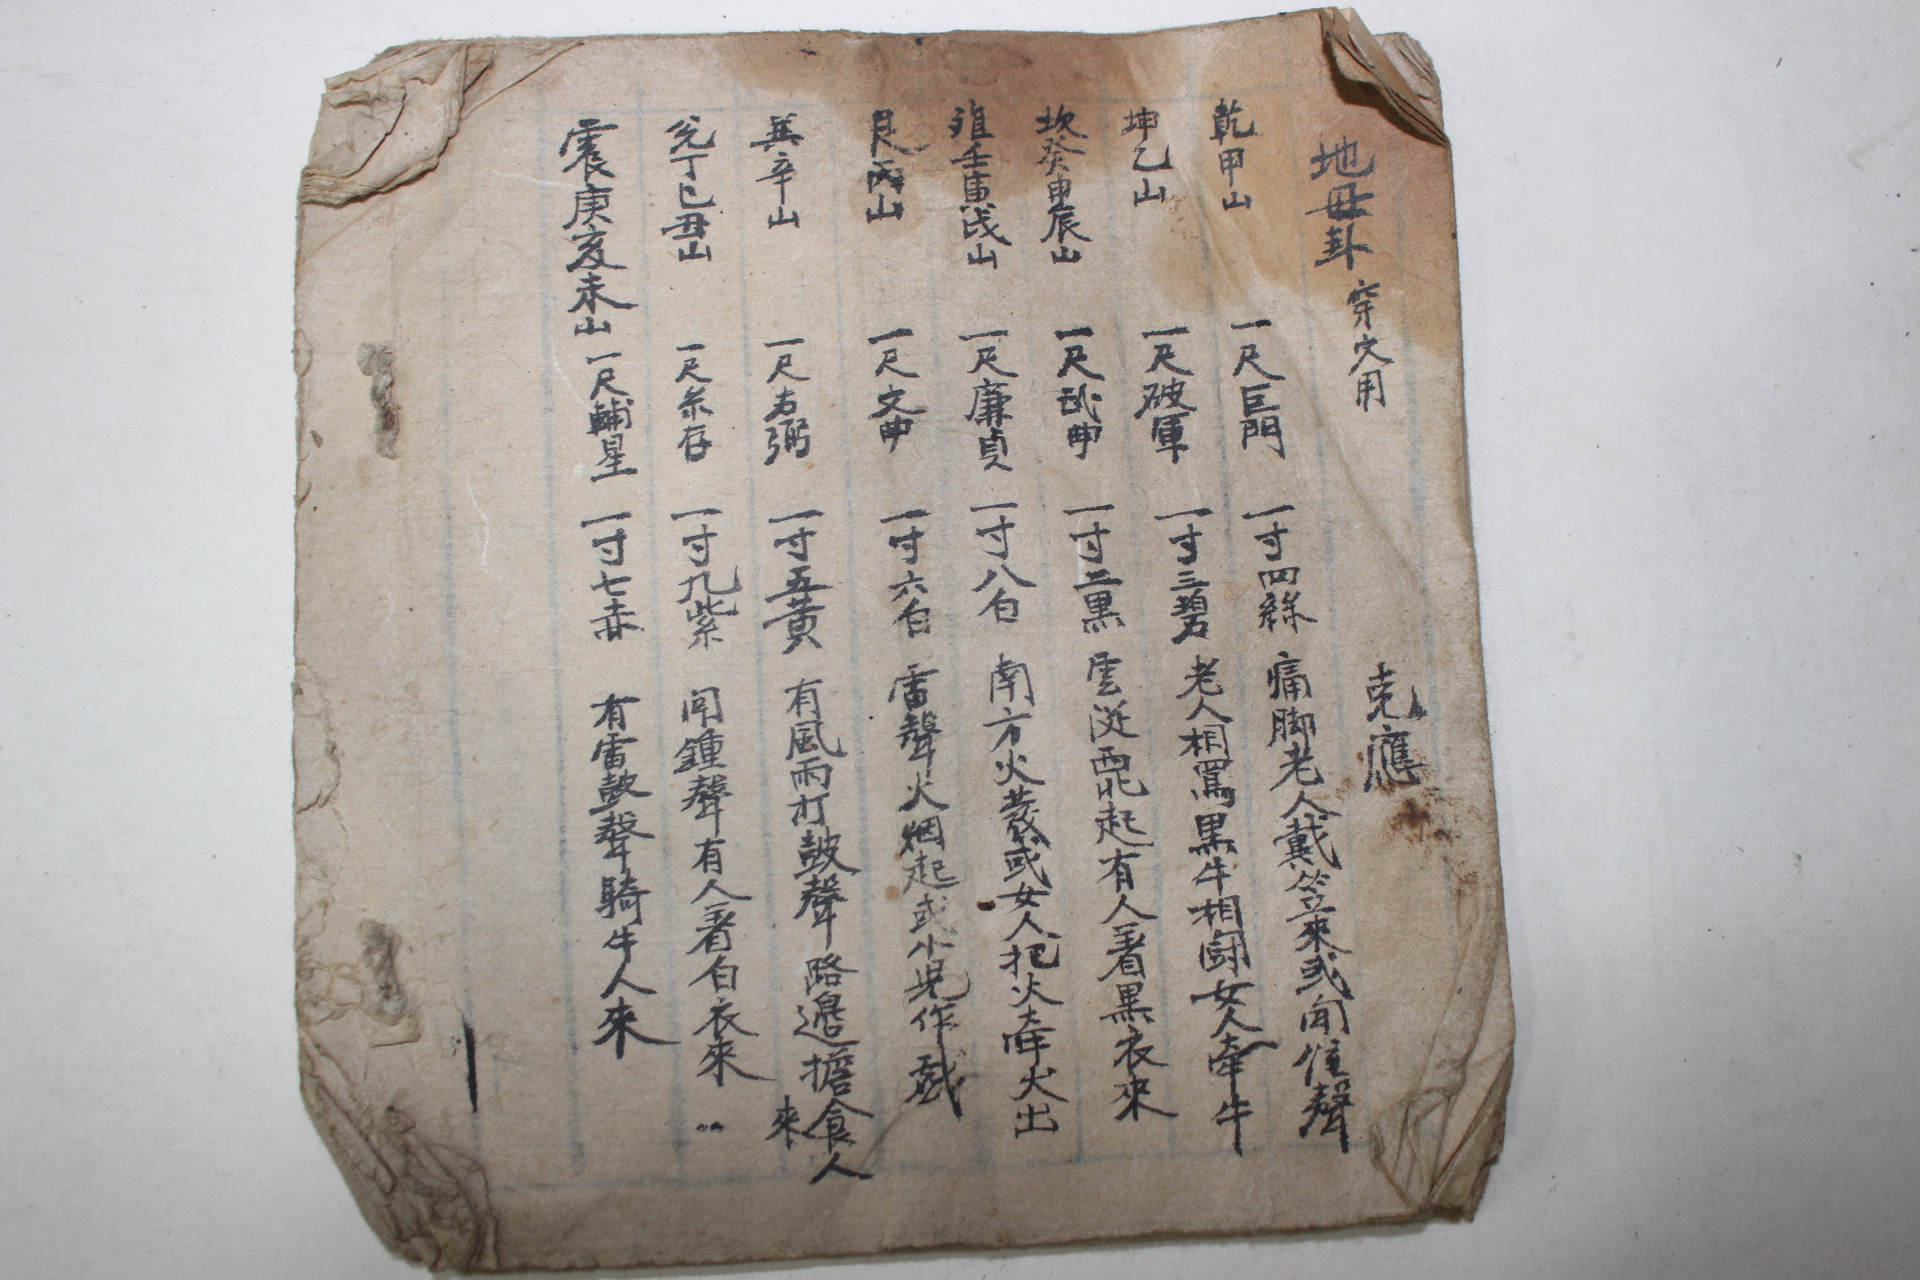 地母卦 穿穴用 克應
乾甲山 一尺巨門 一寸四綠 痛脚老人戴笠來或聞 聲
坤乙山 一尺破軍 一寸三碧 老人相罵黑牛相鬪女人牽牛
坎癸申辰山 一尺武曲 一寸二黑 雲 西北起有人著黑衣來
離壬寅戌山 一尺廉貞 一寸八白 南方火發或女人把火牽犬出
艮丙山 一尺文曲 一寸六白 雷聲火烟起或小児作戱
巽辛山 一尺右弼 一寸五黃 有風雨打鼓聲 路邊擔食人來
兊丁巳丑山 一尺 存 一寸九紫 聞鍾聲有人著白衣來
震庚亥未山 一尺輔星 一寸七赤 有雷鼓聲騎牛人來